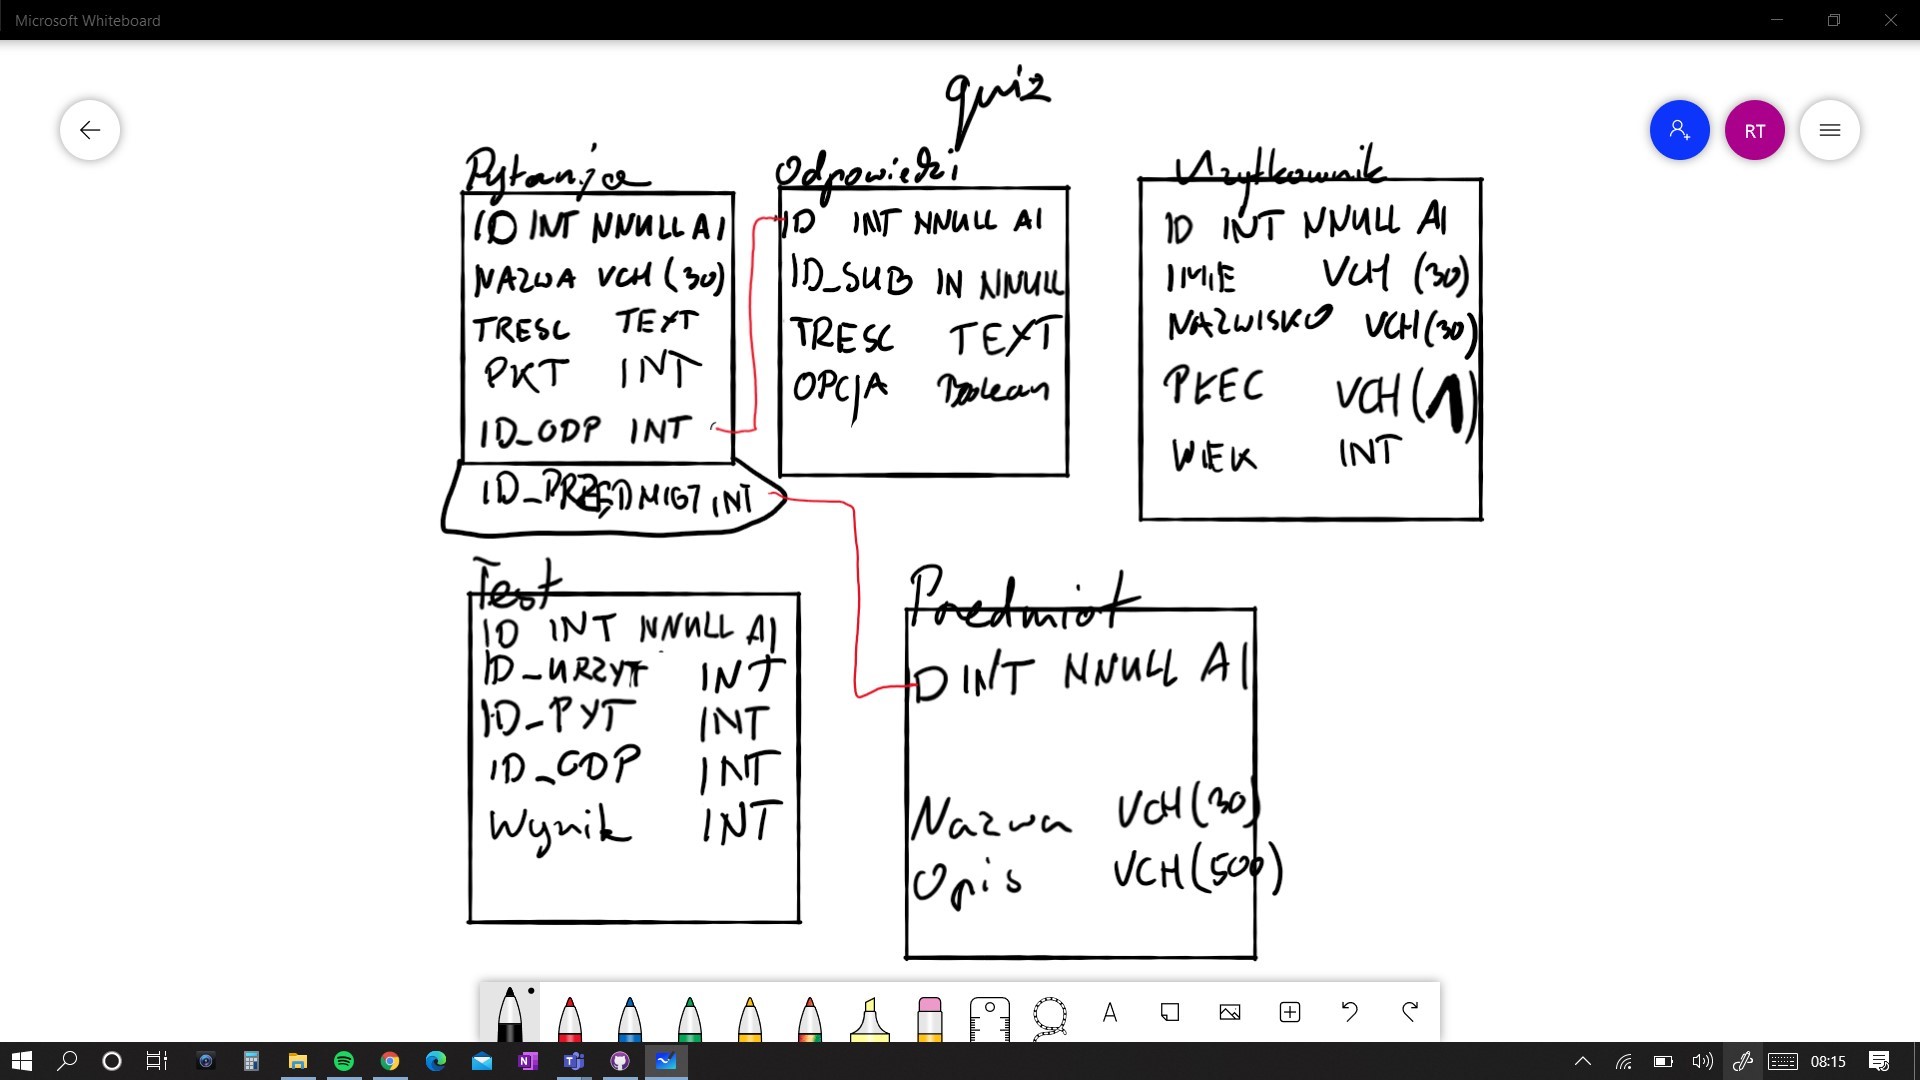 Microsoft Whiteboard
quiz
RT
Pytanja
ID INT NNULL AI
NAZWA VCH (30)
TRESC TEXT
PKT INT
ID_ODP INT
ID_PRZEDMIOT INT
Odpowiedzi
ID INT NNULL AI
ID_SUB IN NNULL
TRESC TEXT
OPCJA Boolean
Użytkownik
ID INT NNULL AI
IMIE VCH (30)
NAZWISKO VCH (30)
PŁEC VCH (1)
WIEK INT
Test
ID INT NNULL AI
ID_URZYT INT
ID_PYT INT
ID_ODP INT
Wynik INT
Przedmiot
ID INT NNULL AI
Nazwa VCH (30)
Opis VCH (500)
08:15